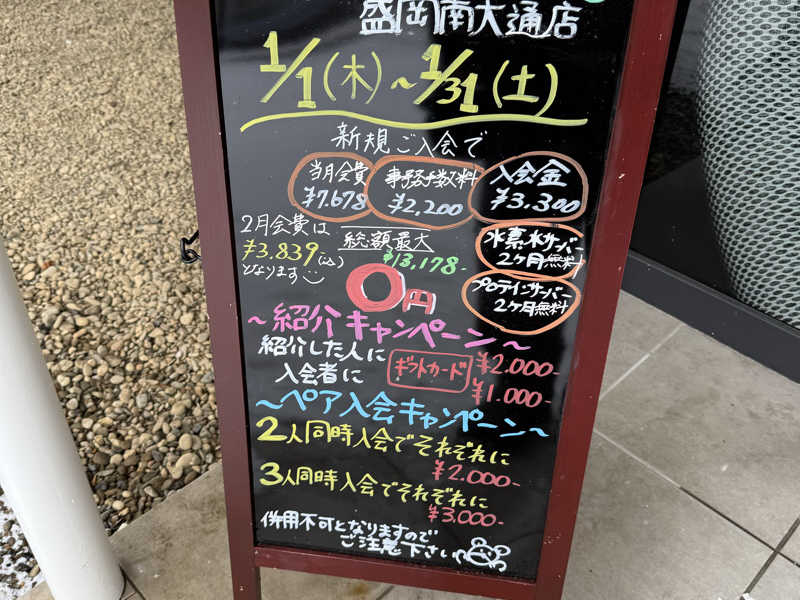 盛岡南大通店
1/1(木)~1/31(土)
新規ご入会で
当月会費
¥7.678
事務手数料
¥2,200
入会金
¥3.300
2月会費は
¥3.839(込)
となります
総額最大
¥13,178-
0円
水素水サーバー
2ヶ月無料
プロテインサーバー
2ヶ月無料
~紹介キャンペーン~
紹介した人に
入会者に
ギフトカード
¥2.000-
¥1.000-
~ペア入会キャンペーン~
2人同時入会でそれぞれに
¥2.000-
3人同時入会でそれぞれに
¥3,000-
併用不可となりますので
ご注意下さい